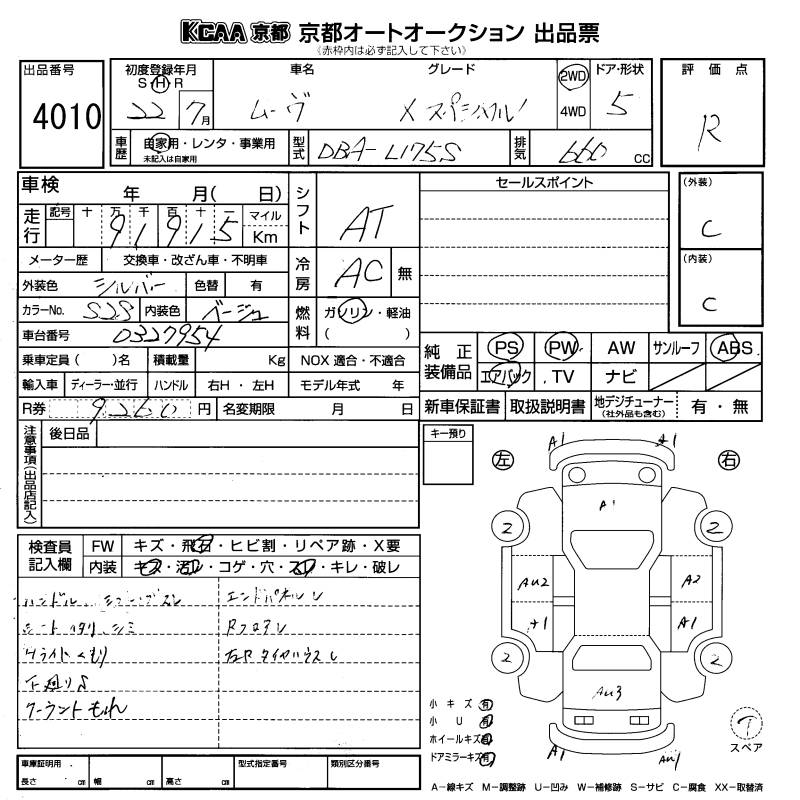 KCAA 京都 京都オートオークション 出品票
(赤枠内は必ず記入して下さい)
出品番号 初度登録年月 車名 グレード 2WD ドア・形状 評価点
S・H・R
4010 22 7月 ムーヴ X スペシャル 4WD 5 R
車歴 自家用・レンタ・事業用 型式 DBA-L175S 排気 660 CC
未記入は自家用
車検 年 月( 日) シフト AT セールスポイント (外装)
走行 記号 十 万 千 百 十 一 マイル C
9 1 9 1 5 Km
メーター歴 交換車・改ざん車・不明車 冷房 AC 無 (内装)
外装色 シルバー 色替 有 C
カラーNo. S28 内装色 ベージュ 燃料 ガソリン・軽油
車台番号 0327954 ( )
乗車定員( )名 積載量 Kg NOX 適合・不適合 純正装備品 PS PW AW サンルーフ ABS
輸入車 ディーラー・並行 ハンドル 右H・左H モデル年式 年 エアバック TV ナビ
R券 9260 円 名変期限 月 日 新車保証書 取扱説明書 地デジチューナー 有・無
(社外品も含む)
注意事項(出品店記入) 後日品 キー預り
A1 A1
左 右
A1
2 2
検査員記入欄 FW キズ・飛石・ヒビ割・リペア跡・X要
内装 キズ・汚れ・コゲ・穴・スレ・キレ・破レ
AU2 A2
ハンドル、シフトノブスレ エンドパネルし
シートヘタリ、シミ RフロアU A1 A1
ライトくもり 左Rタイヤハウスし 2 2
下廻りS
クーラントもれ AU3
小キズ 有
小U 有
ホイールキズ 有
ドアミラーキズ 有 A1 AU1
T
スペア
車庫証明用 型式指定番号 類別区分番号
長さ cm 幅 cm 高さ cm
A-線キズ M-調整跡 U-凹み W-補修跡 S-サビ C-腐食 XX-取替済